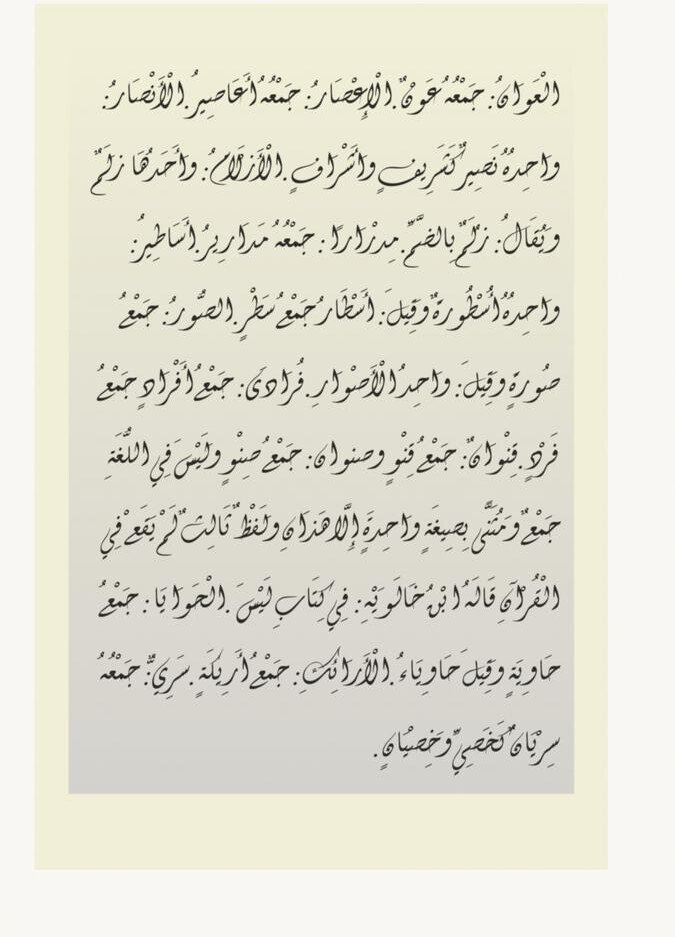 الْعَوَانُ: جَمْعُهُ عَوْنٌ. الْإِعْصَارُ: جَمْعُهُ أَعَاصِيرُ. الْأَنْصَارُ:
وَاحِدُهُ نَصِيرٌ كَشَرِيفٍ وَأَشْرَافٍ. الْأَزْلَامُ: وَأَحَدُهَا زَلَمٌ
وَيُقَالُ: زُلَمٌ بِالضَّمِّ. مِدْرَارًا: جَمْعُهُ مَدَارِيرُ. أَسَاطِيرُ:
وَاحِدُهُ أُسْطُورَةٌ وَقِيلَ: أَسْطَارُ جَمْعُ سَطْرٍ. الصُّورُ: جَمْعُ
صُورَةٍ وَقِيلَ: وَاحِدُ الْأَصْوَارِ. فُرَادَى: جَمْعُ أَفْرَادٍ جَمْعُ
فَرْدٍ. قِنْوَانٌ: جَمْعُ قِنْوٍ وصنوان: جَمْعُ صِنْوٍ وَلَيْسَ فِي اللُّغَةِ
جَمْعٌ وَمُثَنًّى بِصِيغَةٍ وَاحِدَةٍ إِلَّا هَذَانِ وَلَفْظٌ ثَالِثٌ لَمْ يَقَعْ فِي
الْقُرْآنِ قَالَهُ ابْنُ خَالَوَيْهِ: فِي كِتَابِ لَيْسَ. الْحَوَايَا: جَمْعُ
حَاوِيَةٍ وَقِيلَ حَاوِيَاءُ. الْأَرَائِكِ: جَمْعُ أَرِيكَةٍ. سَرِيٌّ: جَمْعُهُ
سِرْيَانٌ كَخَصِيٍّ وَخِصْيَانٍ.